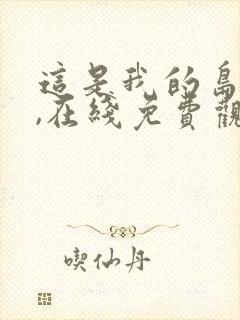 這是我的島
,在綫免費觀
喫仙丹